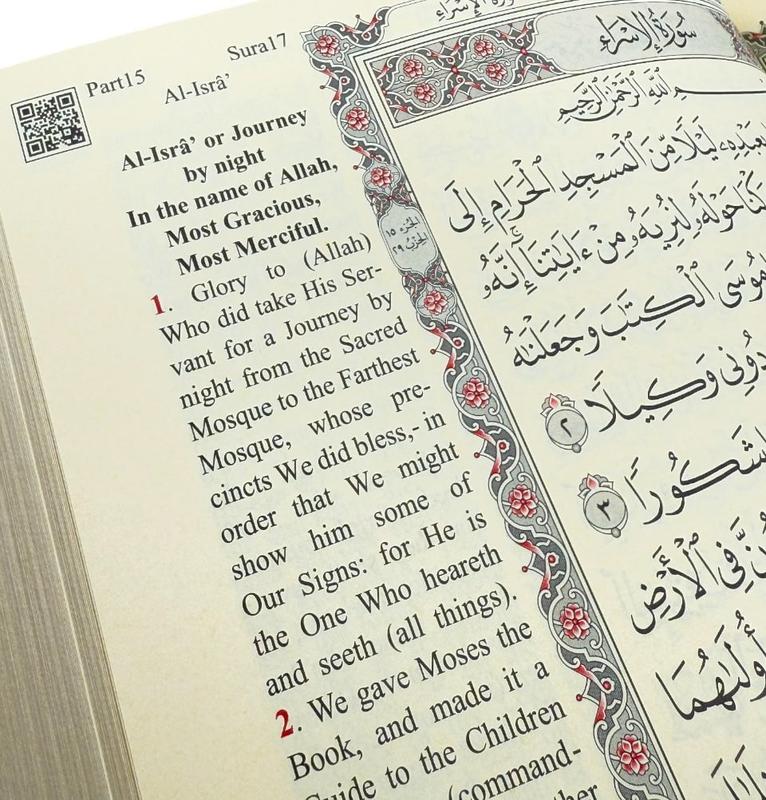 Part15
Sura17
Al-Isrâ’
Al-Isrâ’ or Journey
by night
In the name of Allah,
Most Gracious,
Most Merciful.
1. Glory to (Allah)
Who did take His Ser-
vant for a Journey by
night from the Sacred
Mosque to the Farthest
Mosque, whose pre-
cincts We did bless,- in
order that We might
show him some of
Our Signs: for He is
the One Who heareth
and seeth (all things).
2. We gave Moses the
Book, and made it a
Guide to the Children
(command-
الجزء ١٥
الحزب ٢٩
سُورَةُ الإِسْرَاء
ٱللَّهِ ٱلرَّحْمَٰنِ ٱلرَّحِيمِ
بِعَبْدِهِۦ لَيْلًا مِّنَ ٱلْمَسْجِدِ ٱلْحَرَامِ إِلَى
حَوْلَهُۥ لِنُرِيَهُۥ مِنْ ءَايَٰتِنَآ إِنَّهُۥ هُوَ
مُوسَى ٱلْكِتَٰبَ وَجَعَلْنَٰهُ
دُونِى وَكِيلًا ٢
شَكُورًا ٣
فِى ٱلْأَرْضِ
أُولَىٰهُمَا